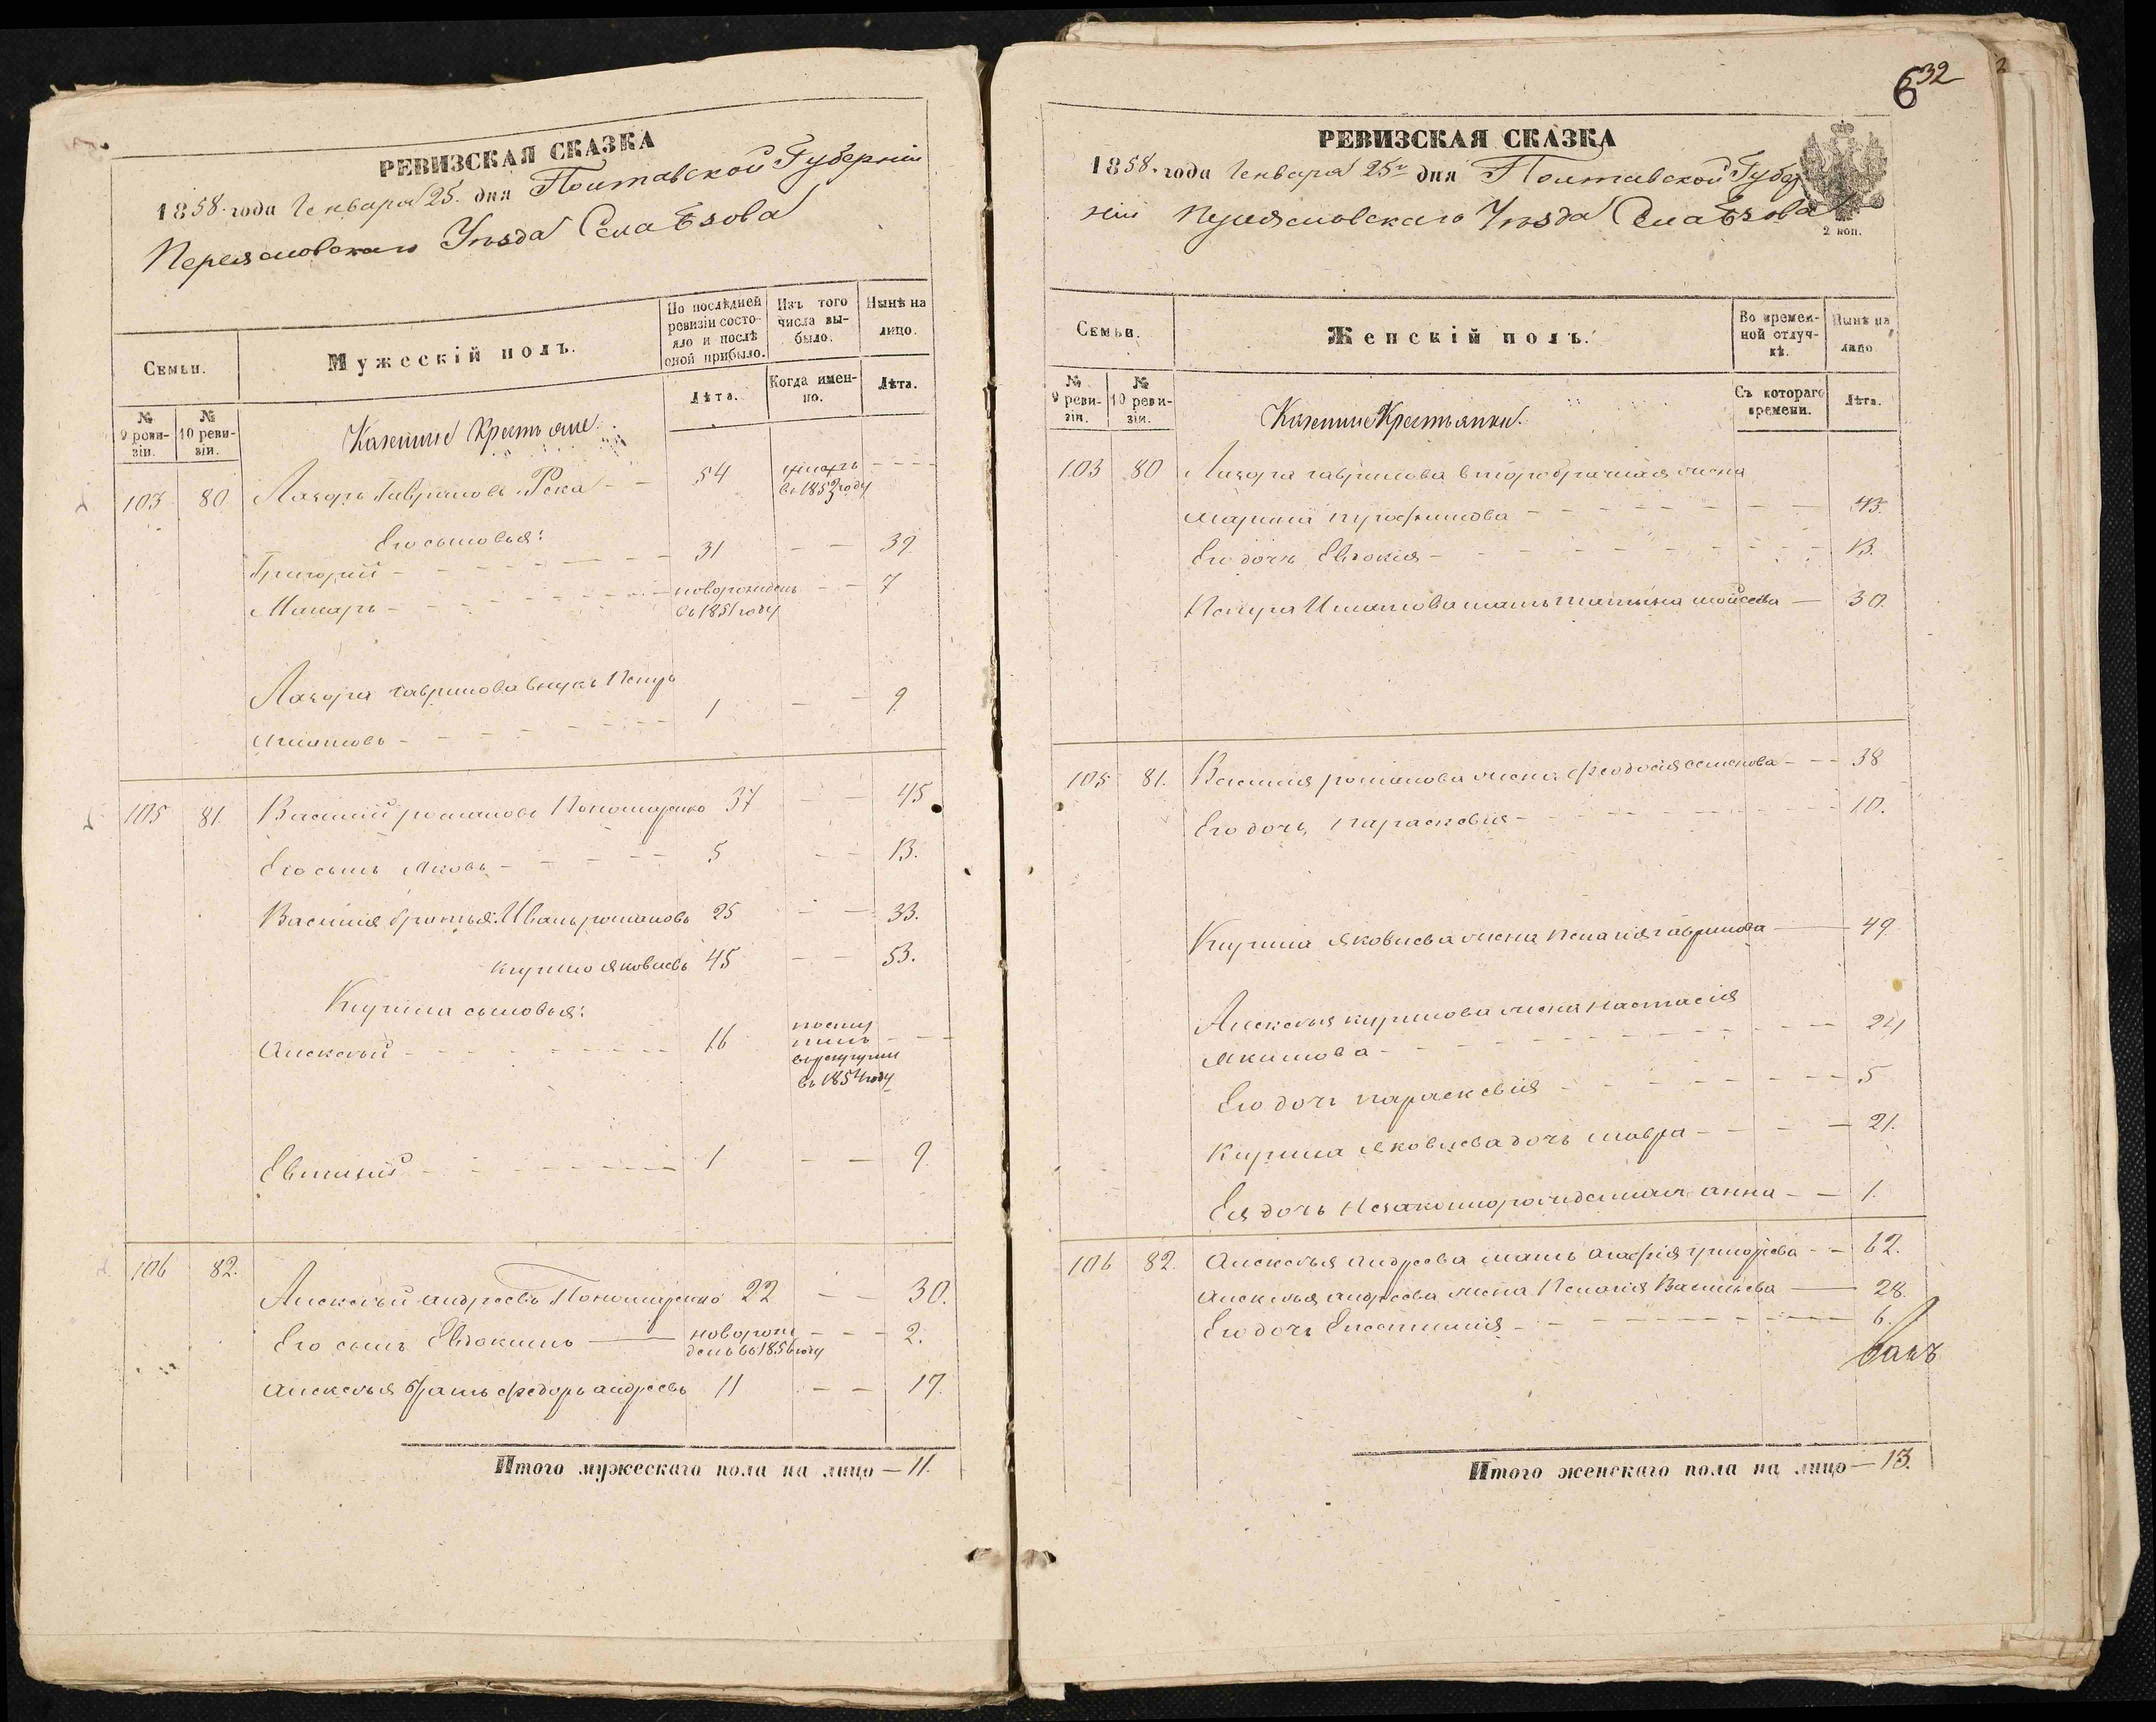 РЕВИЗСКАЯ СКАЗКА
1858 года Генваря 25. дня Полтавской Губерніи
Переясловскаго Уѣзда Села Ѣзова
Семьи.
Мужескій полъ.
По послѣдней ревизіи состояло и послѣ оной прибыло.
Изъ того числа выбыло.
Нынѣ на лицо.
№ 9 ревизіи.
№ 10 ревизіи.
Лѣта.
Когда именно.
Лѣта.
Казенные Крестьяне
103 80 Лазоръ Гавриловъ Река 54 умеръ въ 1853 году
Его сыновья:
Григорий 31 39
Макаръ новорожденъ въ 1851 году 7
Лазоря Гаврилова внукъ Петръ
Игнатовъ 1 9
105 81. Василий романовъ Пономаренко 37 45
Его сынъ Яковъ 5 13.
Василия братья: Иванъ романовъ 25 33.
кирило яковлевъ 45 53.
Кирила сыновья:
Алексѣй 16 поступилъ в рекруты въ 1854 году
Евтихий 1 9
106 82. Алексѣй андреевъ Пономаренко 22 30.
Его сынъ Евдокимъ новорожденъ въ 1856 году 2.
Алексѣя братъ федоръ андреевъ 11 19.
Итого мужескаго пола на лицо — 11.
6 32
2
РЕВИЗСКАЯ СКАЗКА
1858. года Генваря 25го дня Полтавской Губер
ніи Переясловскаго Уѣзда Села Ѣзова
2 коп.
Семьи.
Женскій полъ.
Во временной отлучкѣ.
Нынѣ на лицо
№ 9 ревизіи.
№ 10 ревизіи.
Съ котораго времени.
Лѣта.
Казенные Крестьянки.
103 80 Лазоря гаврилова второбрачная жена
марина трофимова 43.
Его дочь Евдокия 13.
Петра Игнатова мать татьяна моисеева 30.
105 81. Василия романова жена феодосия семенова 38
Его дочь параскевия 10.
Кирила яковлева жена пелагия гаврилова 49
Алексѣя кирилова жена настасия
якимова 24
Его дочь параскевия 5
Кирила яковлева дочь мавра 21.
Ея дочь незаконнорожденная анна 1.
106 82. Алексѣя андреева мать агафия григорева 62.
Алексѣя андреева жена Пелагия Васильева 28.
Его дочь Епистимия 6.
Итого женскаго пола на лицо — 13.